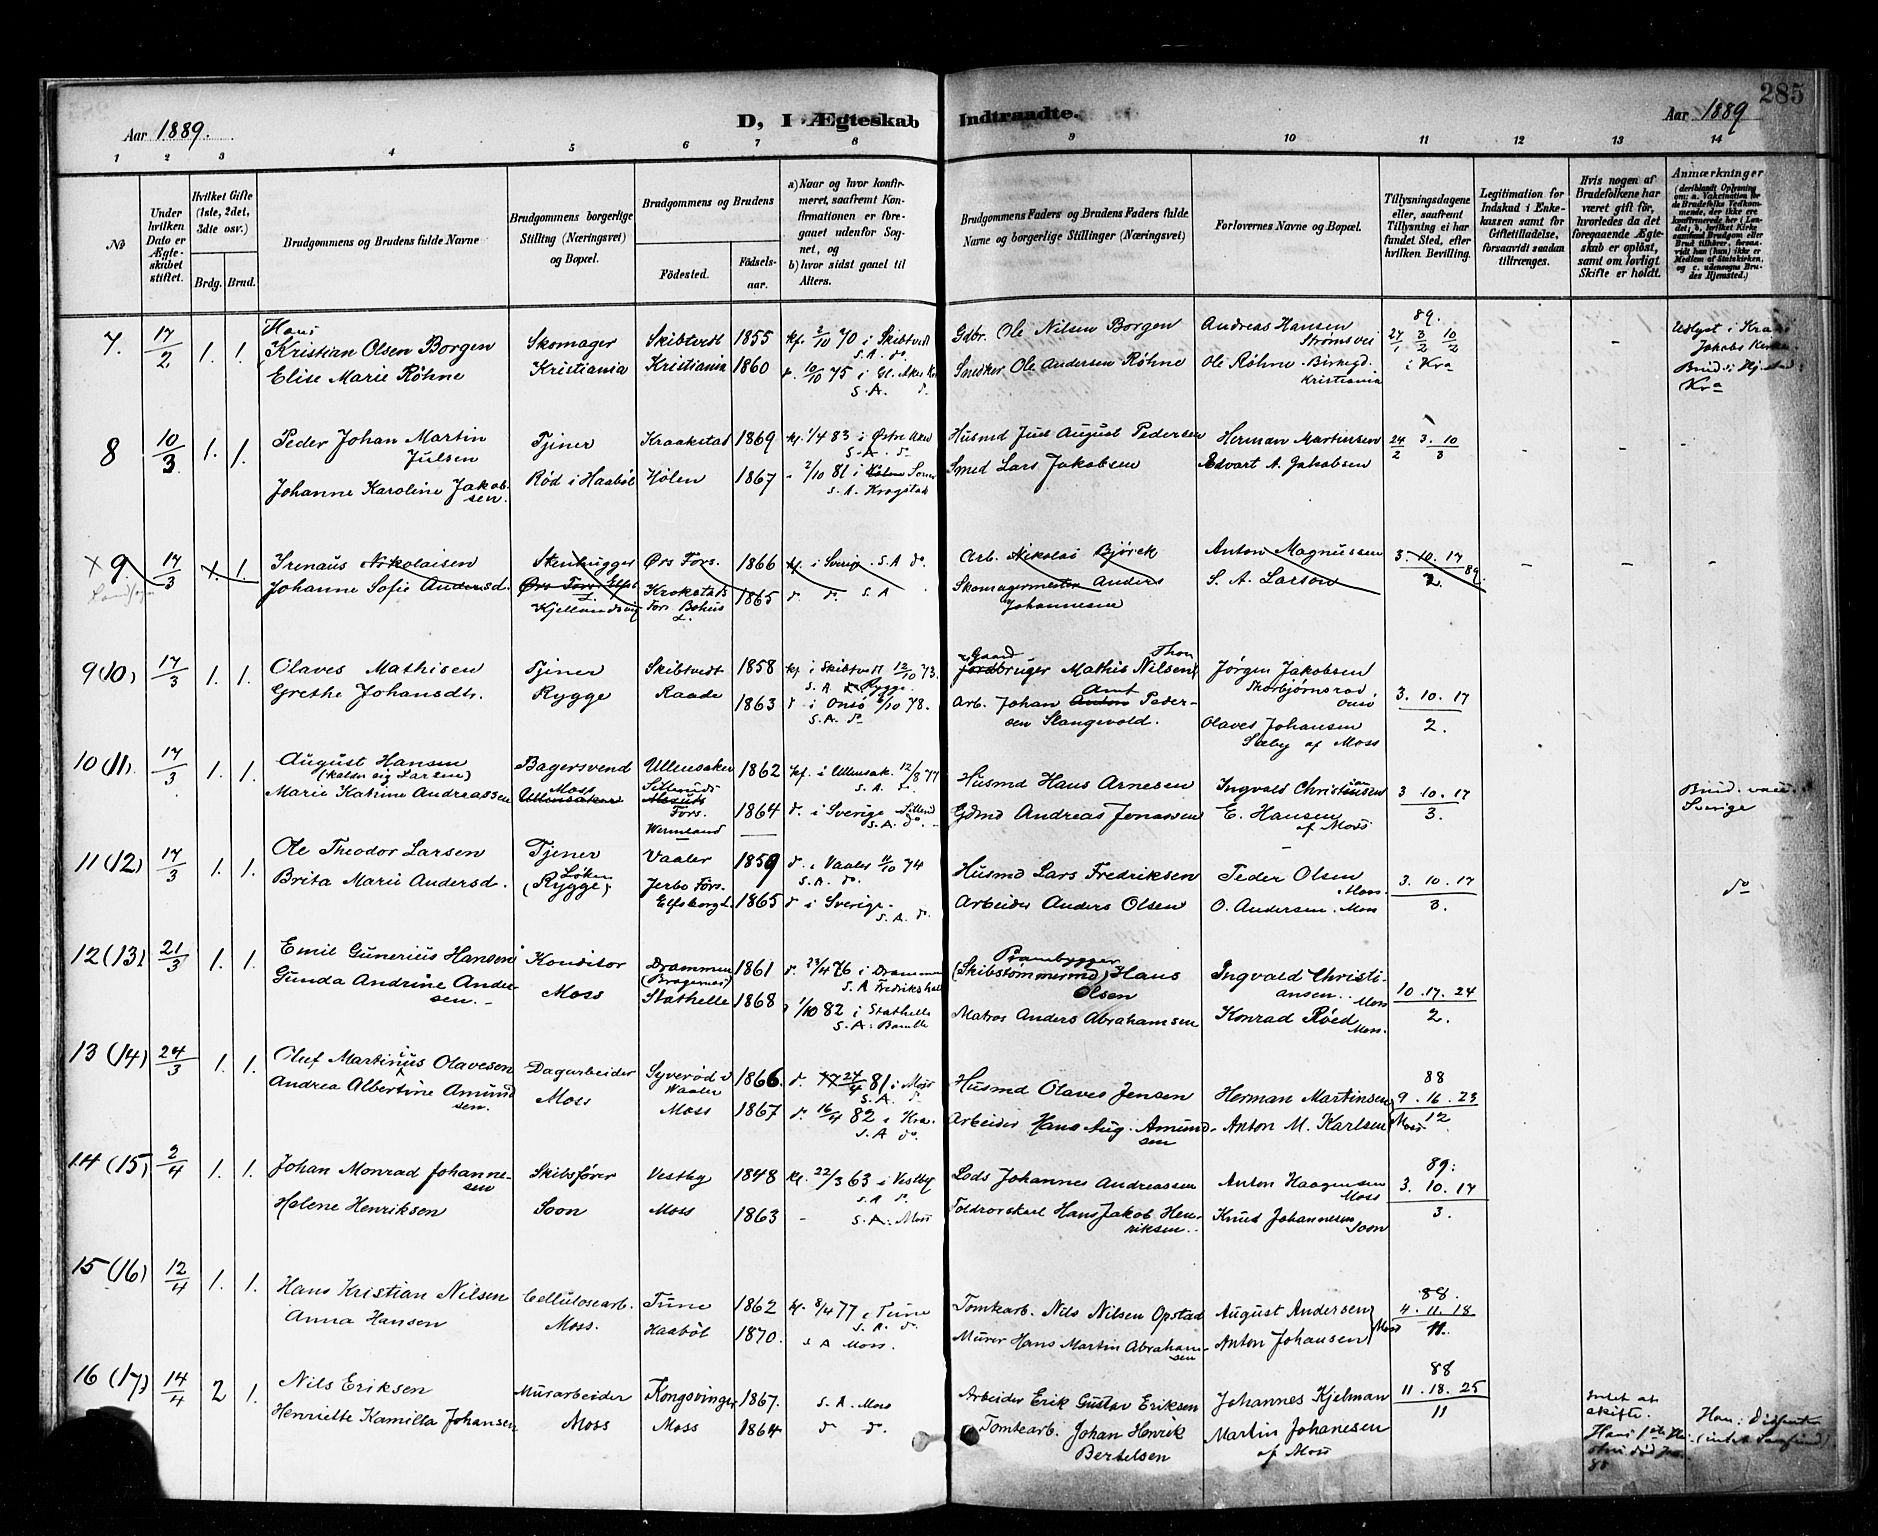 Aar 1889.
D, I Ægteskab Indtraadte.
285
Aar 1889
1 2 3 4 5 6 7 8 9 10 11 12 13 14
No
Under hvilken Dato er Ægteskabet stiftet.
Hvilket Gifte (1ste, 2det, 3die osv.)
Brdg. Brud.
Brudgommens og Brudens fulde Navne
Brudgommens borgerlige Stilling (Næringsvei) og Bopæl.
Brudgommens og Brudens
Födested. Födsels-aar.
a) Naar og hvor konfirmeret, saafremt Konfirmationen er foregaaet udenfor Sognet, og
b) hvor sidst gaaet til Alters.
Brudgommens Faders og Brudens Faders fulde Navne og borgerlige Stillinger (Næringsvei)
Forlovernes Navne og Bopæl.
Tillysningsdagene eller, saafremt Tillysning ei har fundet Sted, efter hvilken Bevilling.
Legitimation for Indskud i Enkekassen samt for Giftetilladelse, forsaavidt saadan tiltrænges.
Hvis nogen af Brudefolkene har været gift før, hvorledes da det foregaaende Ægteskab er opløst, samt om lovligt Skifte er holdt.
Anmærkninger
(deriblandt Oplysning om: a. Vakcination for de Brudefolks Vedkommende, der ikke ere konfirmerede her i Landet; b. hvilket Kirkesamfund Brudgom eller Brud tilhører, forsaavidt han (hun) ikke er Medlem af Statskirken, og c. udensogns Brudes Hjemsted.)
7. 17/2 1. 1. Hans Kristian Olsen Borgen Skomager Skibtvedt 1855 kf. 2/10 70 i Skibtvedt S.A. do. Gdbr. Ole Nilsen Borgen Andreas Hansen Strømsvei 89. 27/1 3/2 10/2 - Udlyst i Kra Jakobs Kirke.
Elise Marie Röhne Kristiania Kristiania 1860 d. 10/10 75 i Gl. Aker S.A. d. Snedker Ole Andersen Røhne Ole Røhne Birkegd. Kristiania i Kra Kra
8 10/3 1. 1. Peder Johan Martin Julsen Tjener Kraakstad 1869 kf. 1/4 83 i Østre Aker S.A. do Husmd Juel August Pedersen Herman Martinsen 24/2 3. 10/3 - - -
Johanne Karoline Jakobsen. Rød i Haabøl Hølen 1867 - 2/10 81 i S.A. Krogstad Smed Lars Jakobsen Edvart A. Jakobsen
9. 17/3 1. 1. Irenäus Nikolaisen Stenhugger Örs Fors. 1866 kf. i Sverig. S.A do. Arb. Nikolai Bjørck Anton Magnussen 3. 10. 17 89. - - -
Johanne Sofie Andersd. Kjellandsvig Krokstads Fors. Bohus L. 1865 d. d. S.A Skomagermester Anders Johannesen S. A. Larson 2.
9(10) 17/3 1. 1. Olaves Mathisen Tjener Skibtvedt 1858 kf. i Skibtvedt 12/10 73. S.A Rygge. Gaardbruger Mathis Nilsen Thon Jørgen Jakobsen Thorbjørnsrød. Onsø 3. 10. 17
Grethe Johansdtr. Rygge Raade 1863 d i Onsö 6/10 78. S.A. do Arb. Johan Amt Pedersen Slangevold. Olaves Johansen Sæby af Moss 2.
10(11). 17/3 1. 1. August Hansen (kalder sig Larsen) Bagersvend Ullensaker 1862 kf. i Ullensak. 12/8 77 S.A. d. Husmd Hans Arnesen Ingvald Christiansen 3 10. 17
Marie Katrine Andreassen Moss Fors. Wermland 1864 d. i Sverige S.A. do. Gdmd Andreas Jonassen E. Hansen af Moss 3. Sverige
11(12) 17/3 1. 1. Ole Theodor Larsen Tjener Vaaler 1859 d. i Vaaler 11/10 74 S.A. do. Husmd Lars Fredriksen Peder Olsen Moss. 3. 10. 17 do
Brita Marie Andersd. (Rygge) Løken Jerbo Förs. Elfsborg L. 1865 d i Sverige. S.A. d. Arbeider Anders Olsen O. Andersen. Moss 3.
12(13) 21/3 1. 1. Emil Gunerius Hansen Konditor Drammen (Bragernes) 1861 d. 23/4 76 i Drammen S.A Fredrikshald Prambygger (Skibstømmermd) Hans Olsen Ingvald Christiansen. Moss 10. 17. 24
Gunda Andrine Andersen. Moss Stathelle 1868 1/10 82 i Stathelle S.A: Bamble Matros Anders Abrahamsen Konrad Røed Moss. 2.
13(14) 24/3 1. 1. Oluf Martinius Olavesen Dagarbeider Syverød i Vaaler 1866. d. 24/4 81 i Moss S.A. d. Husmd Olaves Jensen Herman Martinsen 88 9. 16. 23
Andrea Albertine Amundsen. Moss Moss 1867 d. 16/4 82 i Kra. S.A do Arbeider Hans Aug. Amundsen Anton M. Karlsen Moss 12
14(15) 2/4 1. 1. Johan Monrad Johannesen Skibsfører Vestby 1848 kf. 22/3 63 i Vestby S.A do. Lods Johannes Andreassen Anton Haagensen Moss 89: 3. 10. 17
Helene Henriksen Soon Moss 1863 - S.A. Moss Toldrorskarl Hans Jakob Henriksen. Knud Johannesen Soon 3.
15(16) 12/4 1. 1. Hans Kristian Nilsen Cellulosearb. Tune 1862 kf. 8/4 77 i Tune S.A. do. Tomtearb. Nils Nilsen Opstad August Andersen 88. 4. 11. 18
Anna Hansen Moss. Haaböl 1870. S A Moss. Murer Hans Martin Abrahamsen Anton Johansen Moss 11.
16(17) 14/4 2 1. Nils Eriksen Murarbeider Kongsvinger 1867. S.A. Moss Arbeider Erik Gustav Eriksen Johannes Kjelman 88 11. 18. 25 Intet at skifte. Han: Dissenter
Henriette Kamilla Johansen Moss Moss 1864 d d. Tomtearb. Johan Henrik Bertelsen Martin Johanesen af Moss 11 88